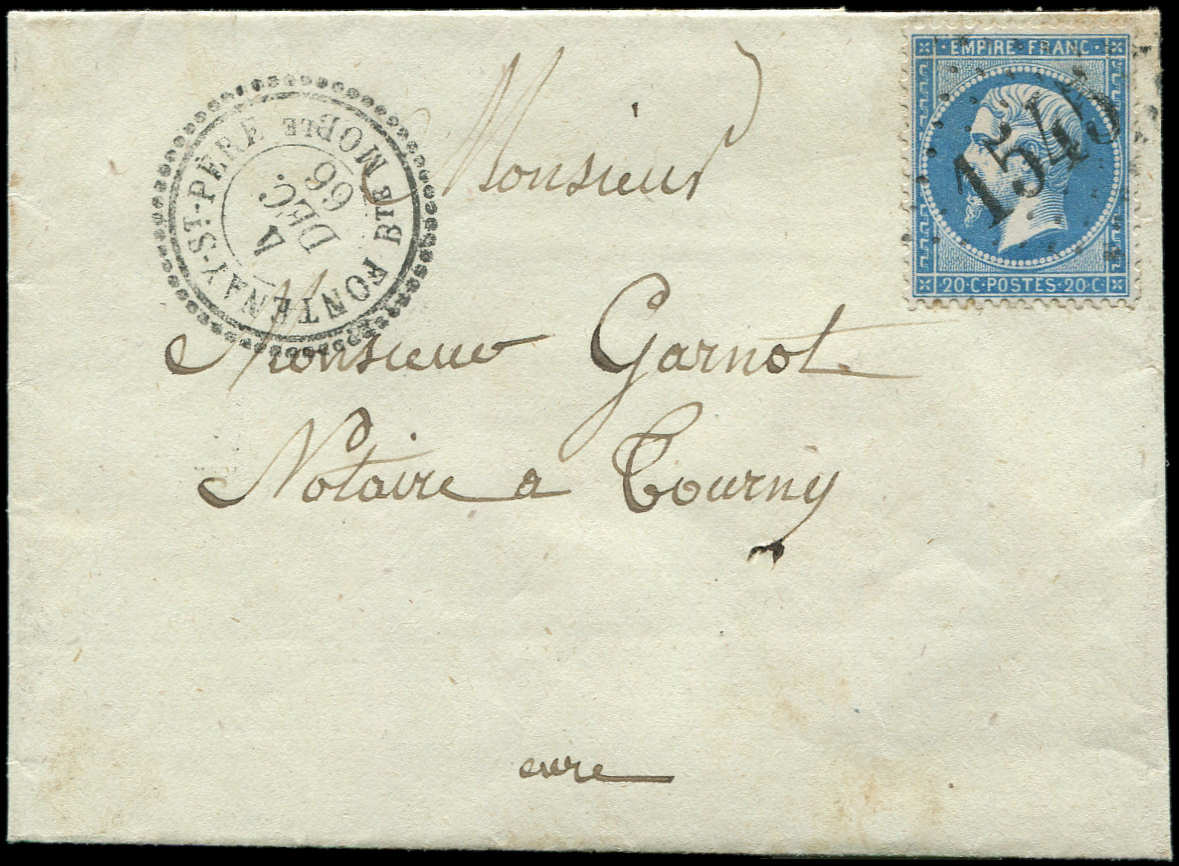 EMPIRE FRANC
1545
20·C·POSTES·20·C
BTE MOBLE FONTENAY-ST-PÈRE
4
DEC.
66
Monsieur
Monsieur Garnot
Notaire a Tourny
eure